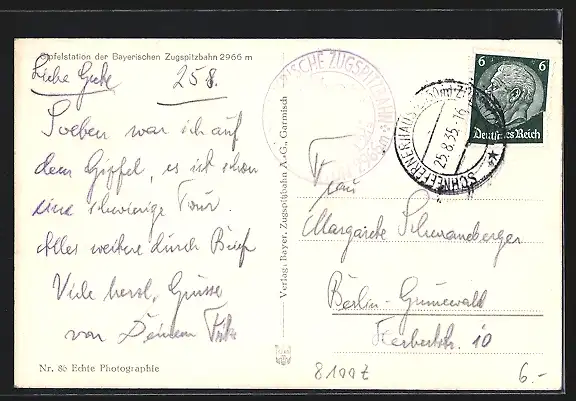 Gipfelstation der Bayerischen Zugspitzbahn 2966 m
Liebe Grete
25 8.
Soeben war ich auf
dem Gipfel, es ist schon
eine schwierige Tour.
Alles weitere durch Brief
Viele herzl. Grüsse
von Deinem Fritz
Nr. 86 Echte Photographie
Verlag: Bayer. Zugspitzbahn A.-G., Garmisch
ISCHE ZUGSPITZBAHN
SCHNEEFERNERHAUS
25.8.35.-16
6 6
Deutsches Reich
Frau
Margarete Schwandberger
Berlin-Grunewald
Herbertstr. 10
8100 Z
6.-